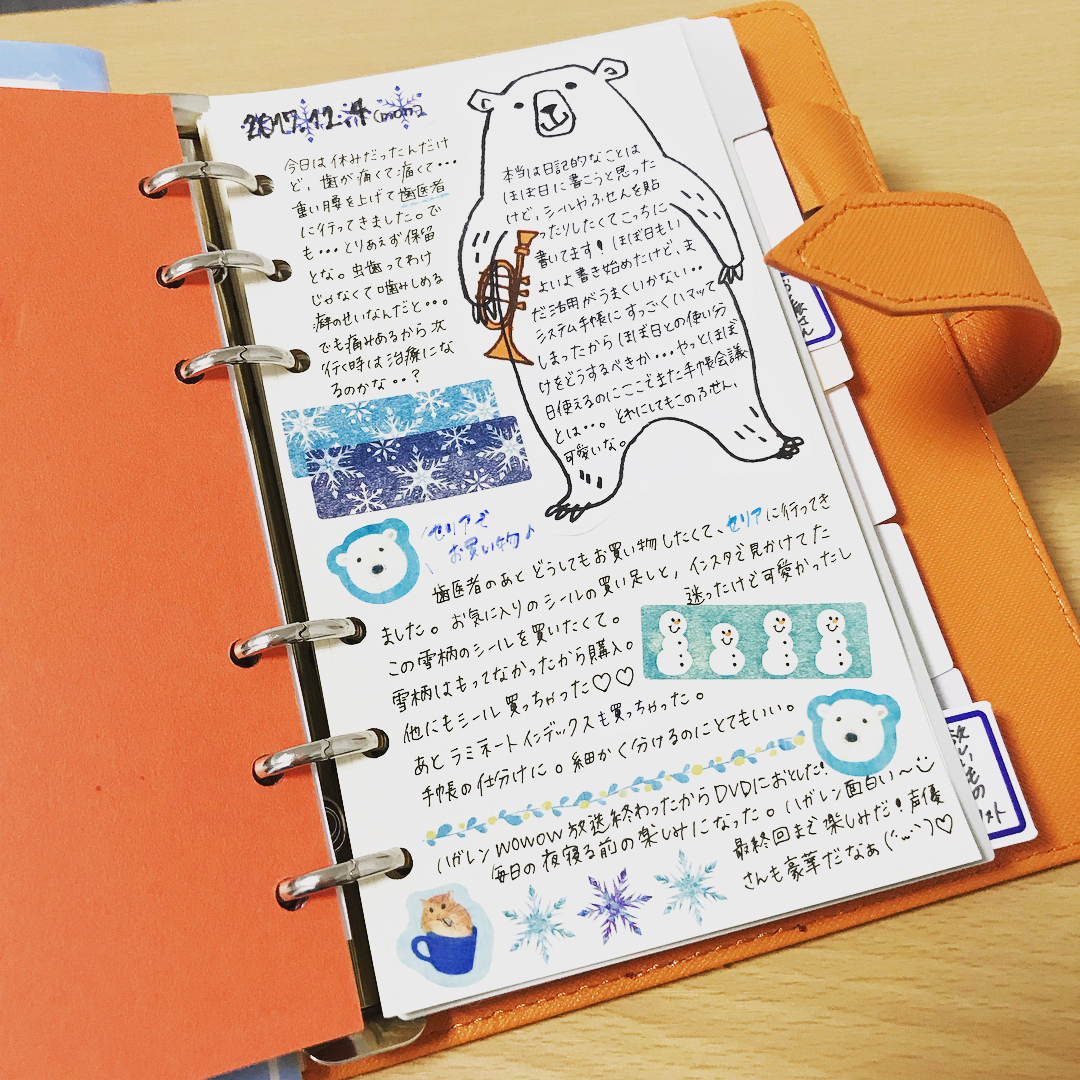 2017.12.4 (mon)
今日は休みだったんだけ
ど、歯が痛くて痛くて・・・
重い腰を上げて歯医者
に行ってきました。で
も・・・とりあえず保留
とな。虫歯ってわけ
じゃなくて噛みしめる
癖のせいなんだと・・。
でも痛みあるから次
行く時は治療にな
るのかな・・？
本当は日記的なことは
ほぼ日に書こうと思った
けど、シールやふせんを貼
ったりしたくてこっちに
書いてます！ほぼ日もい
よいよ書き始めたけど、ま
だ活用がうまくいかない・・
システム手帳にすっごくハマッて
しまったからほぼ日との使い分
けをどうするべきか・・・やっとほぼ
日使えるのにここでまた手帳会議
とは・・。それにしてもこのふせん、
可愛いな。
セリアで
お買い物♪
歯医者のあとどうしてもお買い物したくて、セリアに行ってき
ました。お気に入りのシールの買い足しと、インスタで見かけてた
この雪柄のシールを買いたくて。
迷ったけど可愛かったし
雪柄はもってなかったから購入。
他にもシール買っちゃった♡♡
あとラミネートインデックスも買っちゃった。
手帳の仕分けに。細かく分けるのにとてもいい。
ハガレンWOWOW放送終わったからDVDにおとした！
毎日の夜寝る前の楽しみになった。ハガレン面白い〜
最終回まで楽しみだ！声優
さんも豪華だなぁ(´ω｀)♡